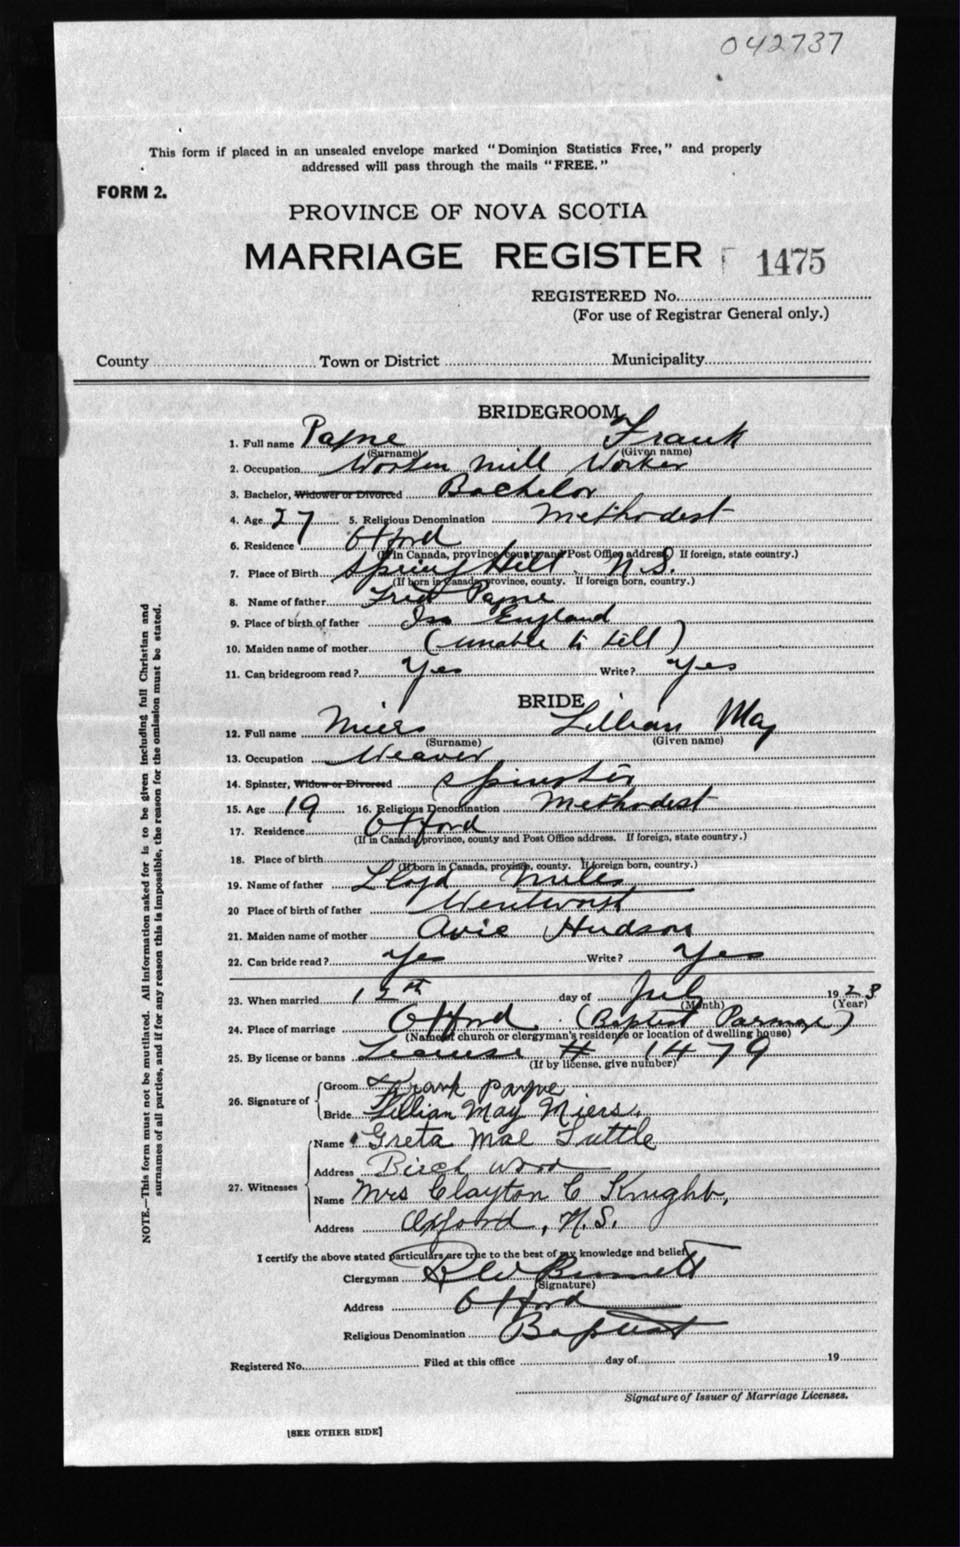 042737
This form if placed in an unsealed envelope marked "Dominion Statistics Free," and properly
addressed will pass through the mails "FREE."
FORM 2.
PROVINCE OF NOVA SCOTIA
MARRIAGE REGISTER 1475
REGISTERED No.
(For use of Registrar General only.)
County Town or District Municipality
BRIDEGROOM
1. Full name Payne Frank
(Surname) (Given name)
2. Occupation Mill Worker
3. Bachelor, Widower or Divorced Bachelor
4. Age 27 5. Religious Denomination Methodest
6. Residence Oxford
(If in Canada, province, county and Post Office address. If foreign, state country.)
7. Place of Birth Spring Hill N.S.
(If born in Canada, province, county. If foreign born, country.)
8. Name of father Fred Payne
9. Place of birth of father In England
10. Maiden name of mother (unable to tell)
11. Can bridegroom read? Yes Write? Yes
BRIDE
12. Full name Miers Lillian May
(Surname) (Given name)
13. Occupation Weaver
14. Spinster, Widow or Divorced Spinster
15. Age 19 16. Religious Denomination Methodest
17. Residence Oxford
(If in Canada, province, county and Post Office address. If foreign, state country.)
18. Place of birth
(If born in Canada, province, county. If foreign born, country.)
19. Name of father Lloyd
20 Place of birth of father Wentworth
21. Maiden name of mother Avie Hudson
22. Can bride read? Yes Write? Yes
23. When married 12th day of July 1923
(Month) (Year)
24. Place of marriage Oxford (Baptist Parsonage)
(Name of church or clergyman's residence or location of dwelling house)
25. By license or banns License # 1479
(If by license, give number)
26. Signature of Groom Frank Payne
Bride Lillian May Miers
27. Witnesses Name Greta Mae Tuttle
Address Birch wood
Name Mrs Clayton C Knight,
Address Oxford, N.S.
I certify the above stated particulars are true to the best of my knowledge and belief.
Clergyman
(Signature)
Address Oxford
Religious Denomination Baptist
Registered No. Filed at this office day of 19
Signature of Issuer of Marriage Licenses.
[SEE OTHER SIDE]
NOTE.—This form must not be mutilated. All information asked for is to be given including full Christian and
surnames of all parties, and if for any reason this is impossible, the reason for the omission must be stated.